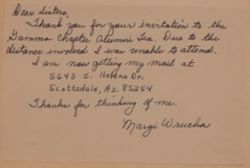 Dear Sisters,
Thank you for your invitation to the
Gamma Chapter Alumni Tea. Due to the
distance involved I was unable to attend.
I am now getting my mail at
5643 E. Helena Dr.
Scottsdale, Az. 85254
Thanks for thinking of me.
Margi